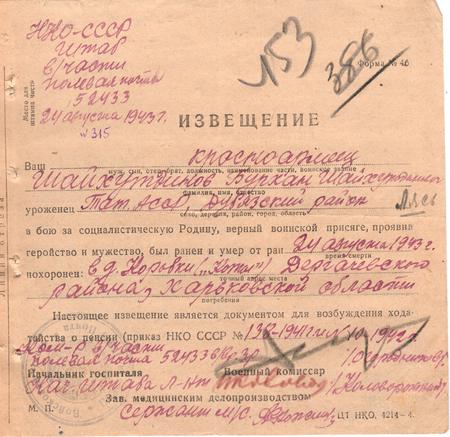 НКО-СССР
Штаб
в/части
полевая почта
52433
24 августа 1943 г.
№ 315
153
386
Форма № 46
Место для штампа части
ИЗВЕЩЕНИЕ
Ваш — красноармеец
муж, сын, отец, брат, должность, наименование части, воинское звание
Шайхутдинов Бурхан
фамилия, имя, отчество
уроженец Тат. АССР, район
село, деревня, район, город, область
в бою за социалистическую Родину, верный воинской присяге, проявив
геройство и мужество, был ранен и умер от ран 24 августа 1943 г.
время смерти
похоронен: в д. Коровки Дергачевского
точный адрес места
района, Харьковской области
погребения
Настоящее извещение является документом для возбуждения хода-
тайства о пенсии (приказ НКО СССР № 138-1941 г.
Ком-р в/части
полевая почта 52433
Начальник госпиталя Военный комиссар
Нач. штаба л-нт
Зав. медицинским делопроизводством
М. П. сержант м/с ЦТ НКО, 4214-4.
Линия отреза